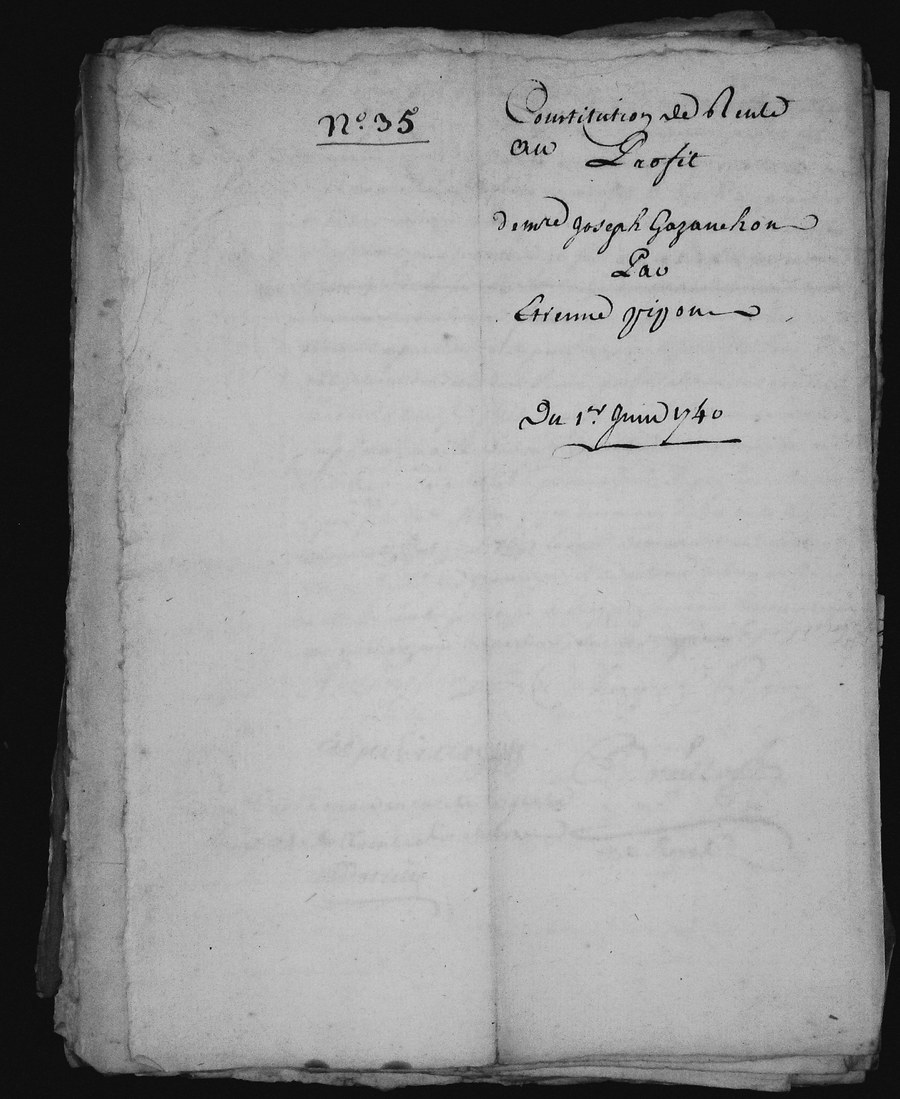 N.º 35
Constitution de Rente
au Profit
de mre Joseph Gazanchon
Par
Etienne pipon
Du 1.er Juin 1740